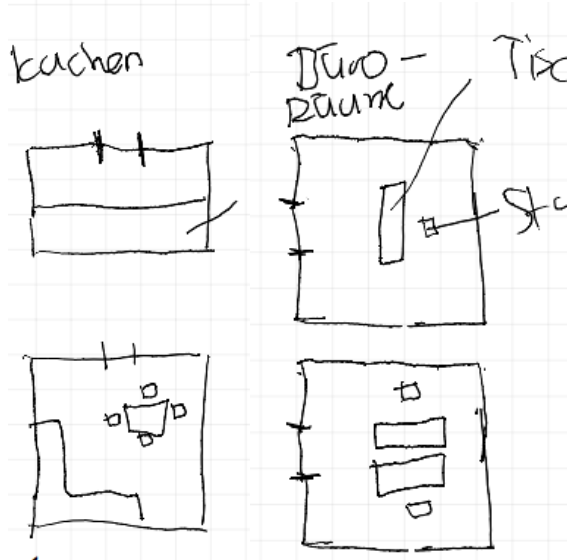 kuchen
Büro-
räume
Tisc
Stu